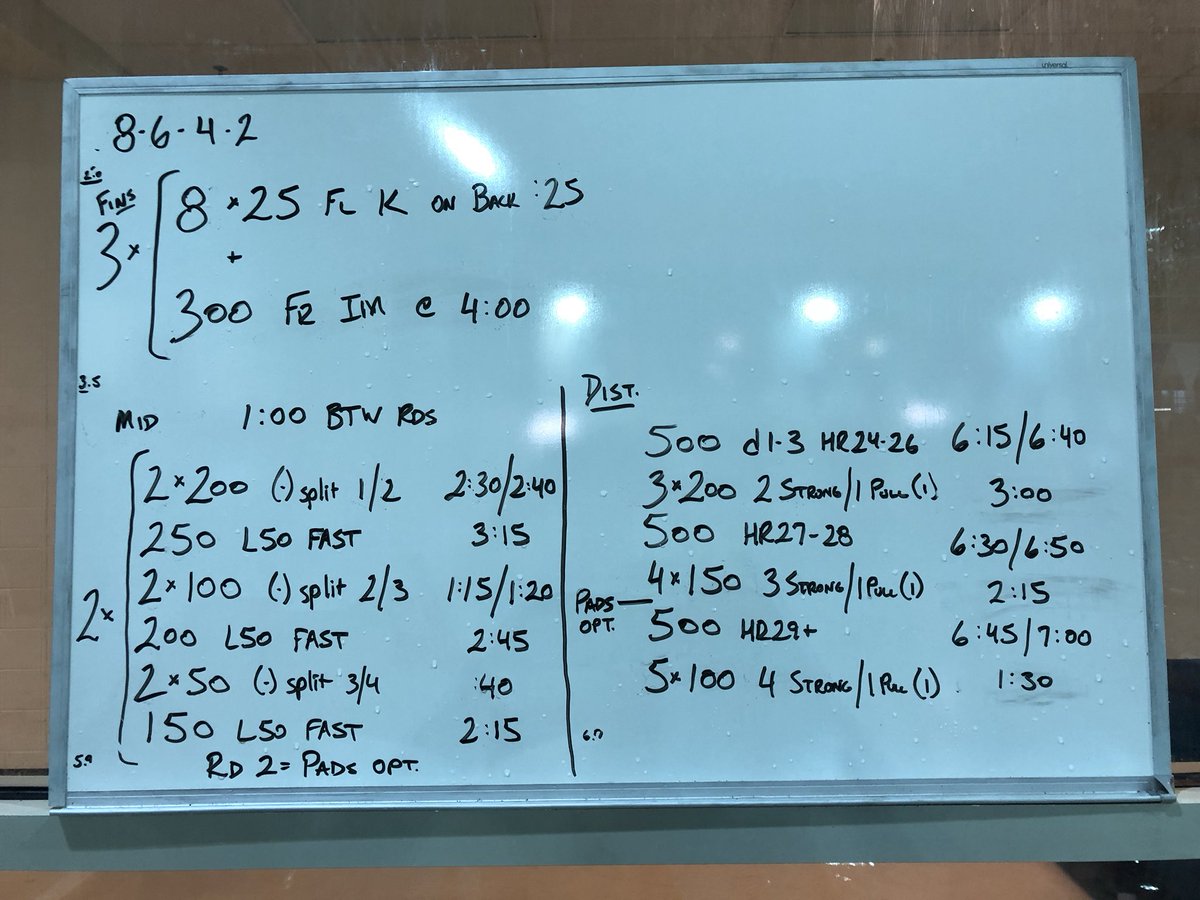 universal
8·6·4·2
2.0
FINS
3× 8 × 25 FL K ON BACK :25
+
300 FR IM @ 4:00
3.5
MID 1:00 BTW RDS
2×
2×200 (-) split 1/2 2:30/2:40
250 L50 FAST 3:15
2×100 (-) split 2/3 1:15/1:20
200 L50 FAST 2:45
2×50 (-) split 3/4 :40
150 L50 FAST 2:15
RD 2 = PADS OPT.
DIST.
500 d1-3 HR24-26 6:15/6:40
3×200 2 STRONG/1 PULL (1) 3:00
500 HR27-28 6:30/6:50
4×150 3 STRONG/1 PULL (1) 2:15
PADS OPT.
500 HR29+ 6:45/7:00
5×100 4 STRONG/1 PULL (1) 1:30